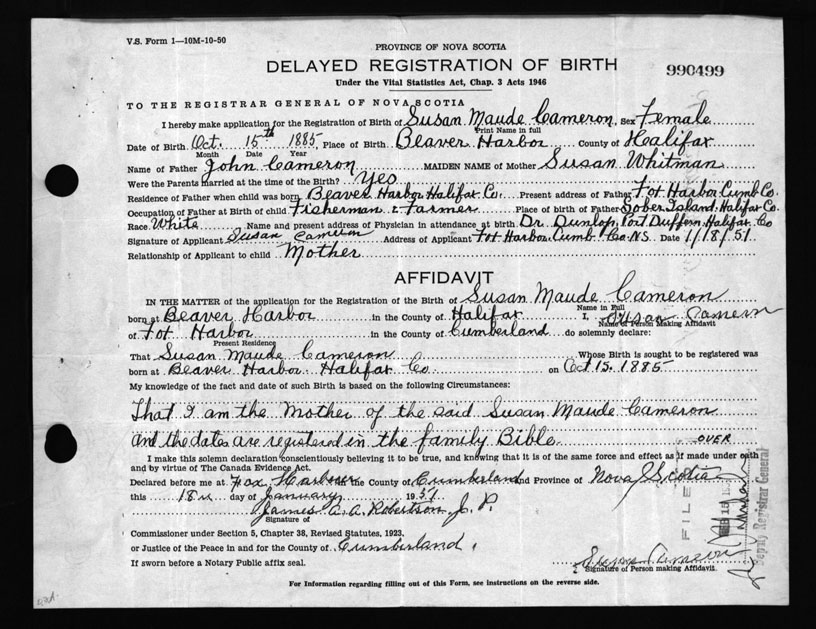 V.S. Form 1—10M-10-50
PROVINCE OF NOVA SCOTIA
DELAYED REGISTRATION OF BIRTH
990499
Under the Vital Statistics Act, Chap. 3 Acts 1946
TO THE REGISTRAR GENERAL OF NOVA SCOTIA
I hereby make application for the Registration of Birth of Susan Maude Cameron, Sex Female
Print Name in full
Date of Birth Oct. 15th 1885 Place of Birth Beaver Harbor County of Halifax
Month Date Year
Name of Father John Cameron MAIDEN NAME of Mother Susan Whitman
Were the Parents married at the time of the Birth? Yes
Residence of Father when child was born Beaver Harbor Halifax Co. Present address of Father Fox Harbor Cumb Co.
Occupation of Father at Birth of child Fisherman & Farmer Place of birth of Father Sober Island, Halifax Co.
Race White Name and present address of Physician in attendance at birth Dr. Dunlop, Port Dufferin, Halifax Co
Signature of Applicant Susan Cameron Address of Applicant Fox Harbor Cumb Co NS Date 1/18/51
Relationship of Applicant to child Mother
AFFIDAVIT
IN THE MATTER of the application for the Registration of the Birth of Susan Maude Cameron
Name in Full
born at Beaver Harbor in the County of Halifax I, Susan Camern
Name of Person Making Affidavit
of Fox Harbor in the County of Cumberland do solemnly declare:
Present Residence
That Susan Maude Cameron Whose Birth is sought to be registered was
born at Beaver Harbor Halifax Co on Oct 15. 1885
My knowledge of the fact and date of such Birth is based on the following Circumstances:
That I am the Mother of the said Susan Maude Cameron
and the dates are registered in the family Bible OVER
I make this solemn declaration conscientiously believing it to be true, and knowing that it is of the same force and effect as if made under oath
and by virtue of The Canada Evidence Act.
Declared before me at Fox Harbour the County of Cumberland and Province of Nova Scotia
this 18 day of January 1951
James A. A. Robertson J. P.
Signature of
Commissioner under Section 5, Chapter 38, Revised Statutes, 1923,
or Justice of the Peace in and for the County of Cumberland.
If sworn before a Notary Public affix seal.
Susan Cameron
Signature of Person making Affidavit.
FILED
FEB 15
Deputy Registrar General
For Information regarding filling out of this Form, see instructions on the reverse side.